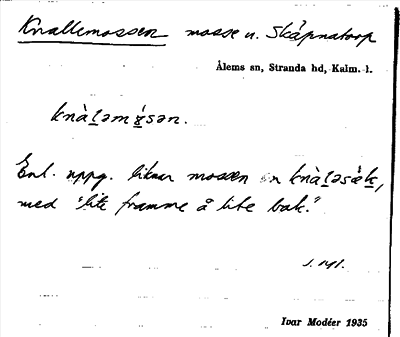 Knallemossen mosse n. Skåpnatorp
Ålems sn, Stranda hd, Kalm. l.
knàl̲əmo̲sən.
Enl. uppg. liknar mossen en knàl̲əsäk,
med "lite framme å lite bak."
Ivar Modéer 1935